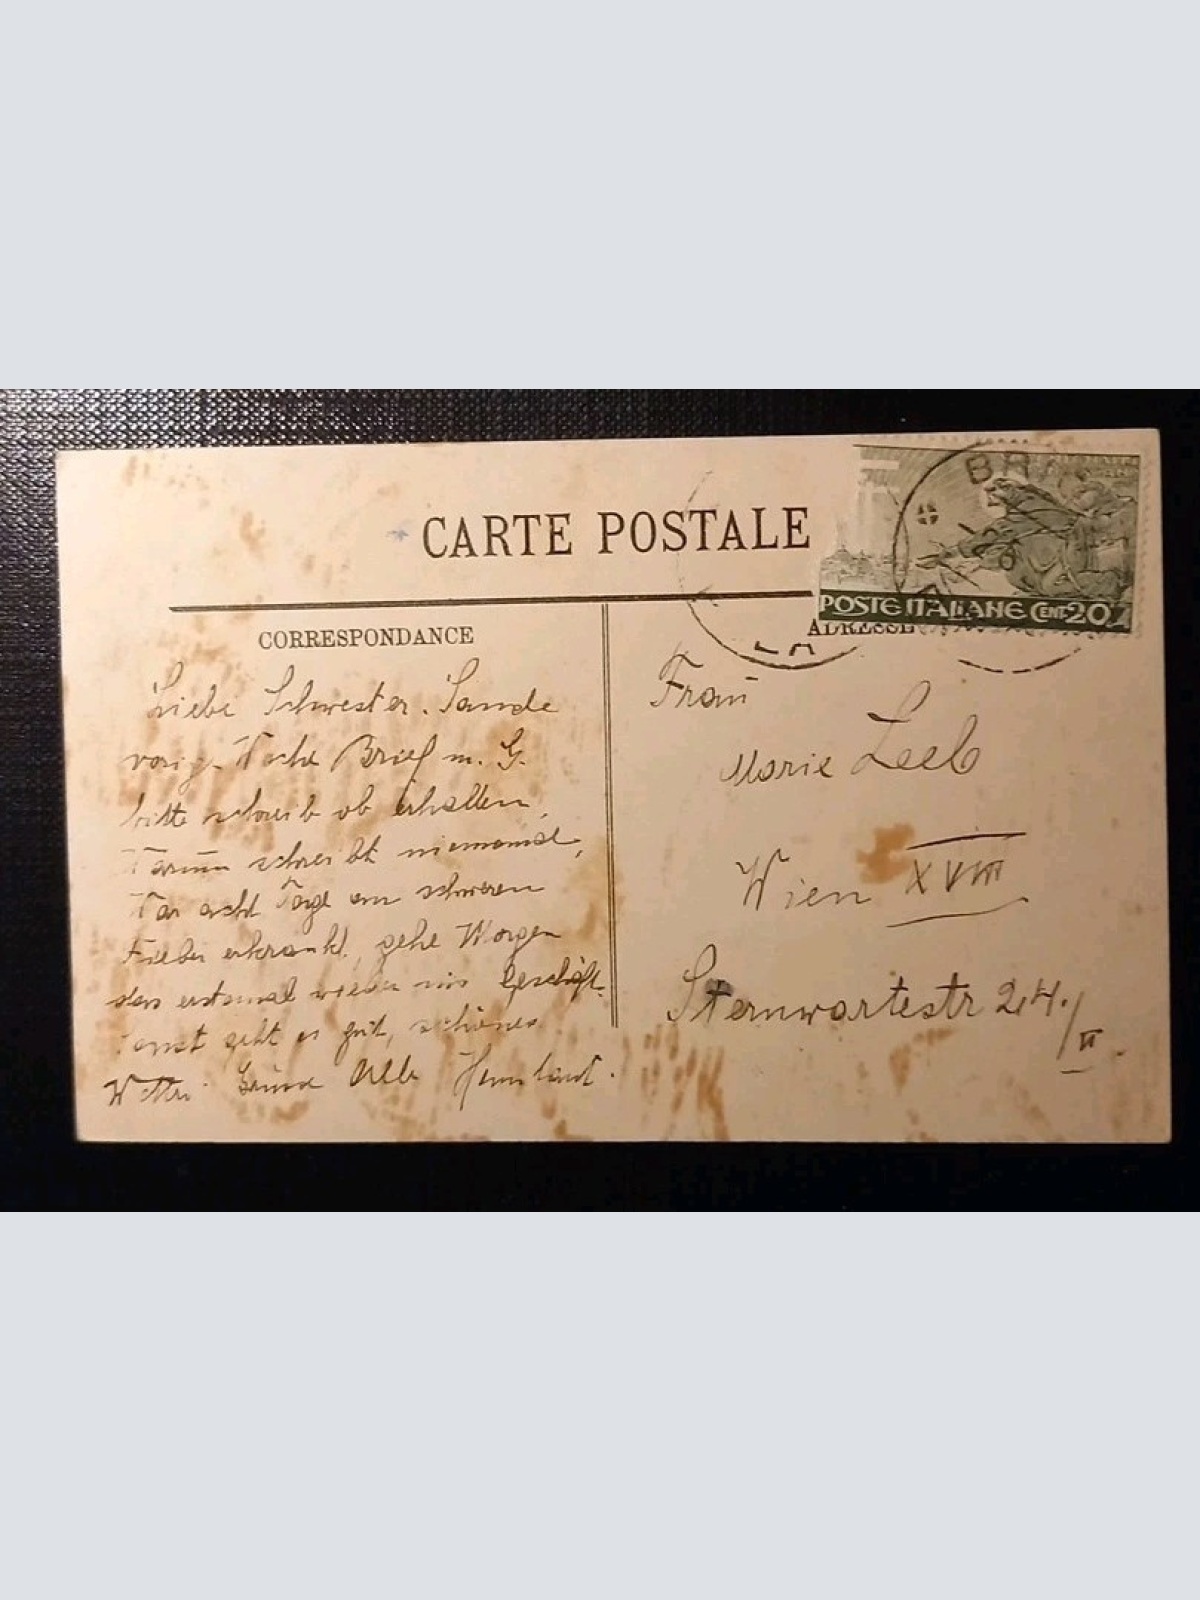 CARTE POSTALE
BR
LA
POSTE ITALIANE CENT 20
CORRESPONDANCE
ADRESSE
Liebe Schwester. Sande
vorig. Woche Brief m. G.
bitte schreib ob erhalten,
Warum schreibt niemand,
War acht Tage an schweren
Fieber erkrankt, gehe Morgen
das erstemal wieder ins Geschäft.
Sonst geht es gut, schönes
Wetter. Grüsse Alle
Frau
Marie Leeb
Wien XVIII
Sternwartestr 24./II.